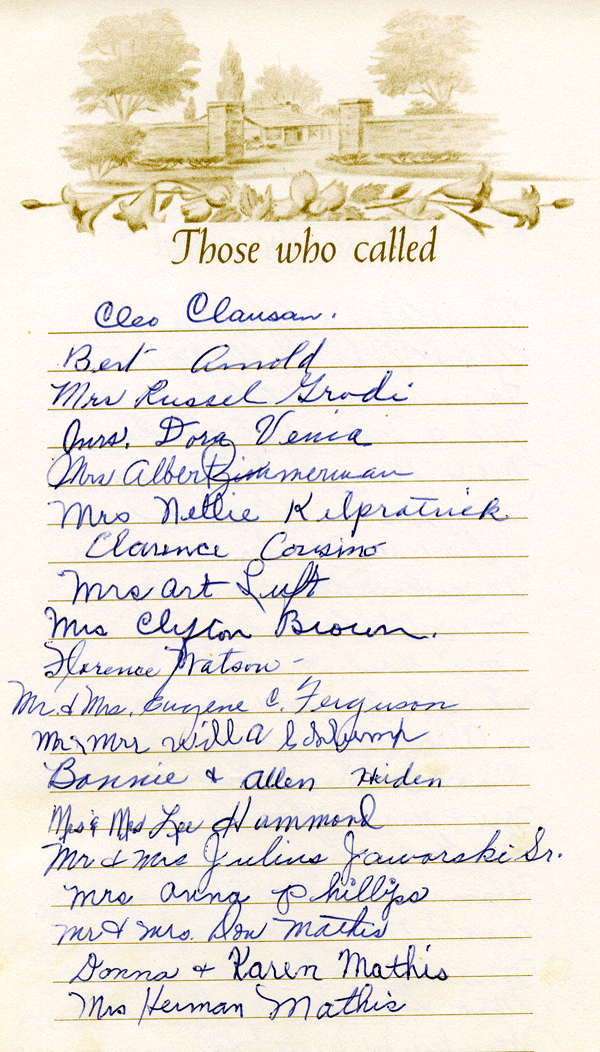 Those who called
Cleo Clausan.
Bert Arnold
Mrs Russel Grodi
Mrs. Dora Venia
Mrs Albert Zimmerman
Mrs Nellie Kilpratrick
Clarence Cousino
Mrs Art Luft
Mrs Clifton Brown.
Florence Watson -
Mr. & Mrs. Eugene C. Ferguson
Mr & Mrs Will A
Bonnie & Allen Heiden
Mrs & Mrs Lee Hammond
Mr & Mrs Julius Jaworski Sr.
Mrs Anna Phillips
Mr & Mrs. Don Mathis
Donna & Karen Mathis
Mrs Herman Mathis